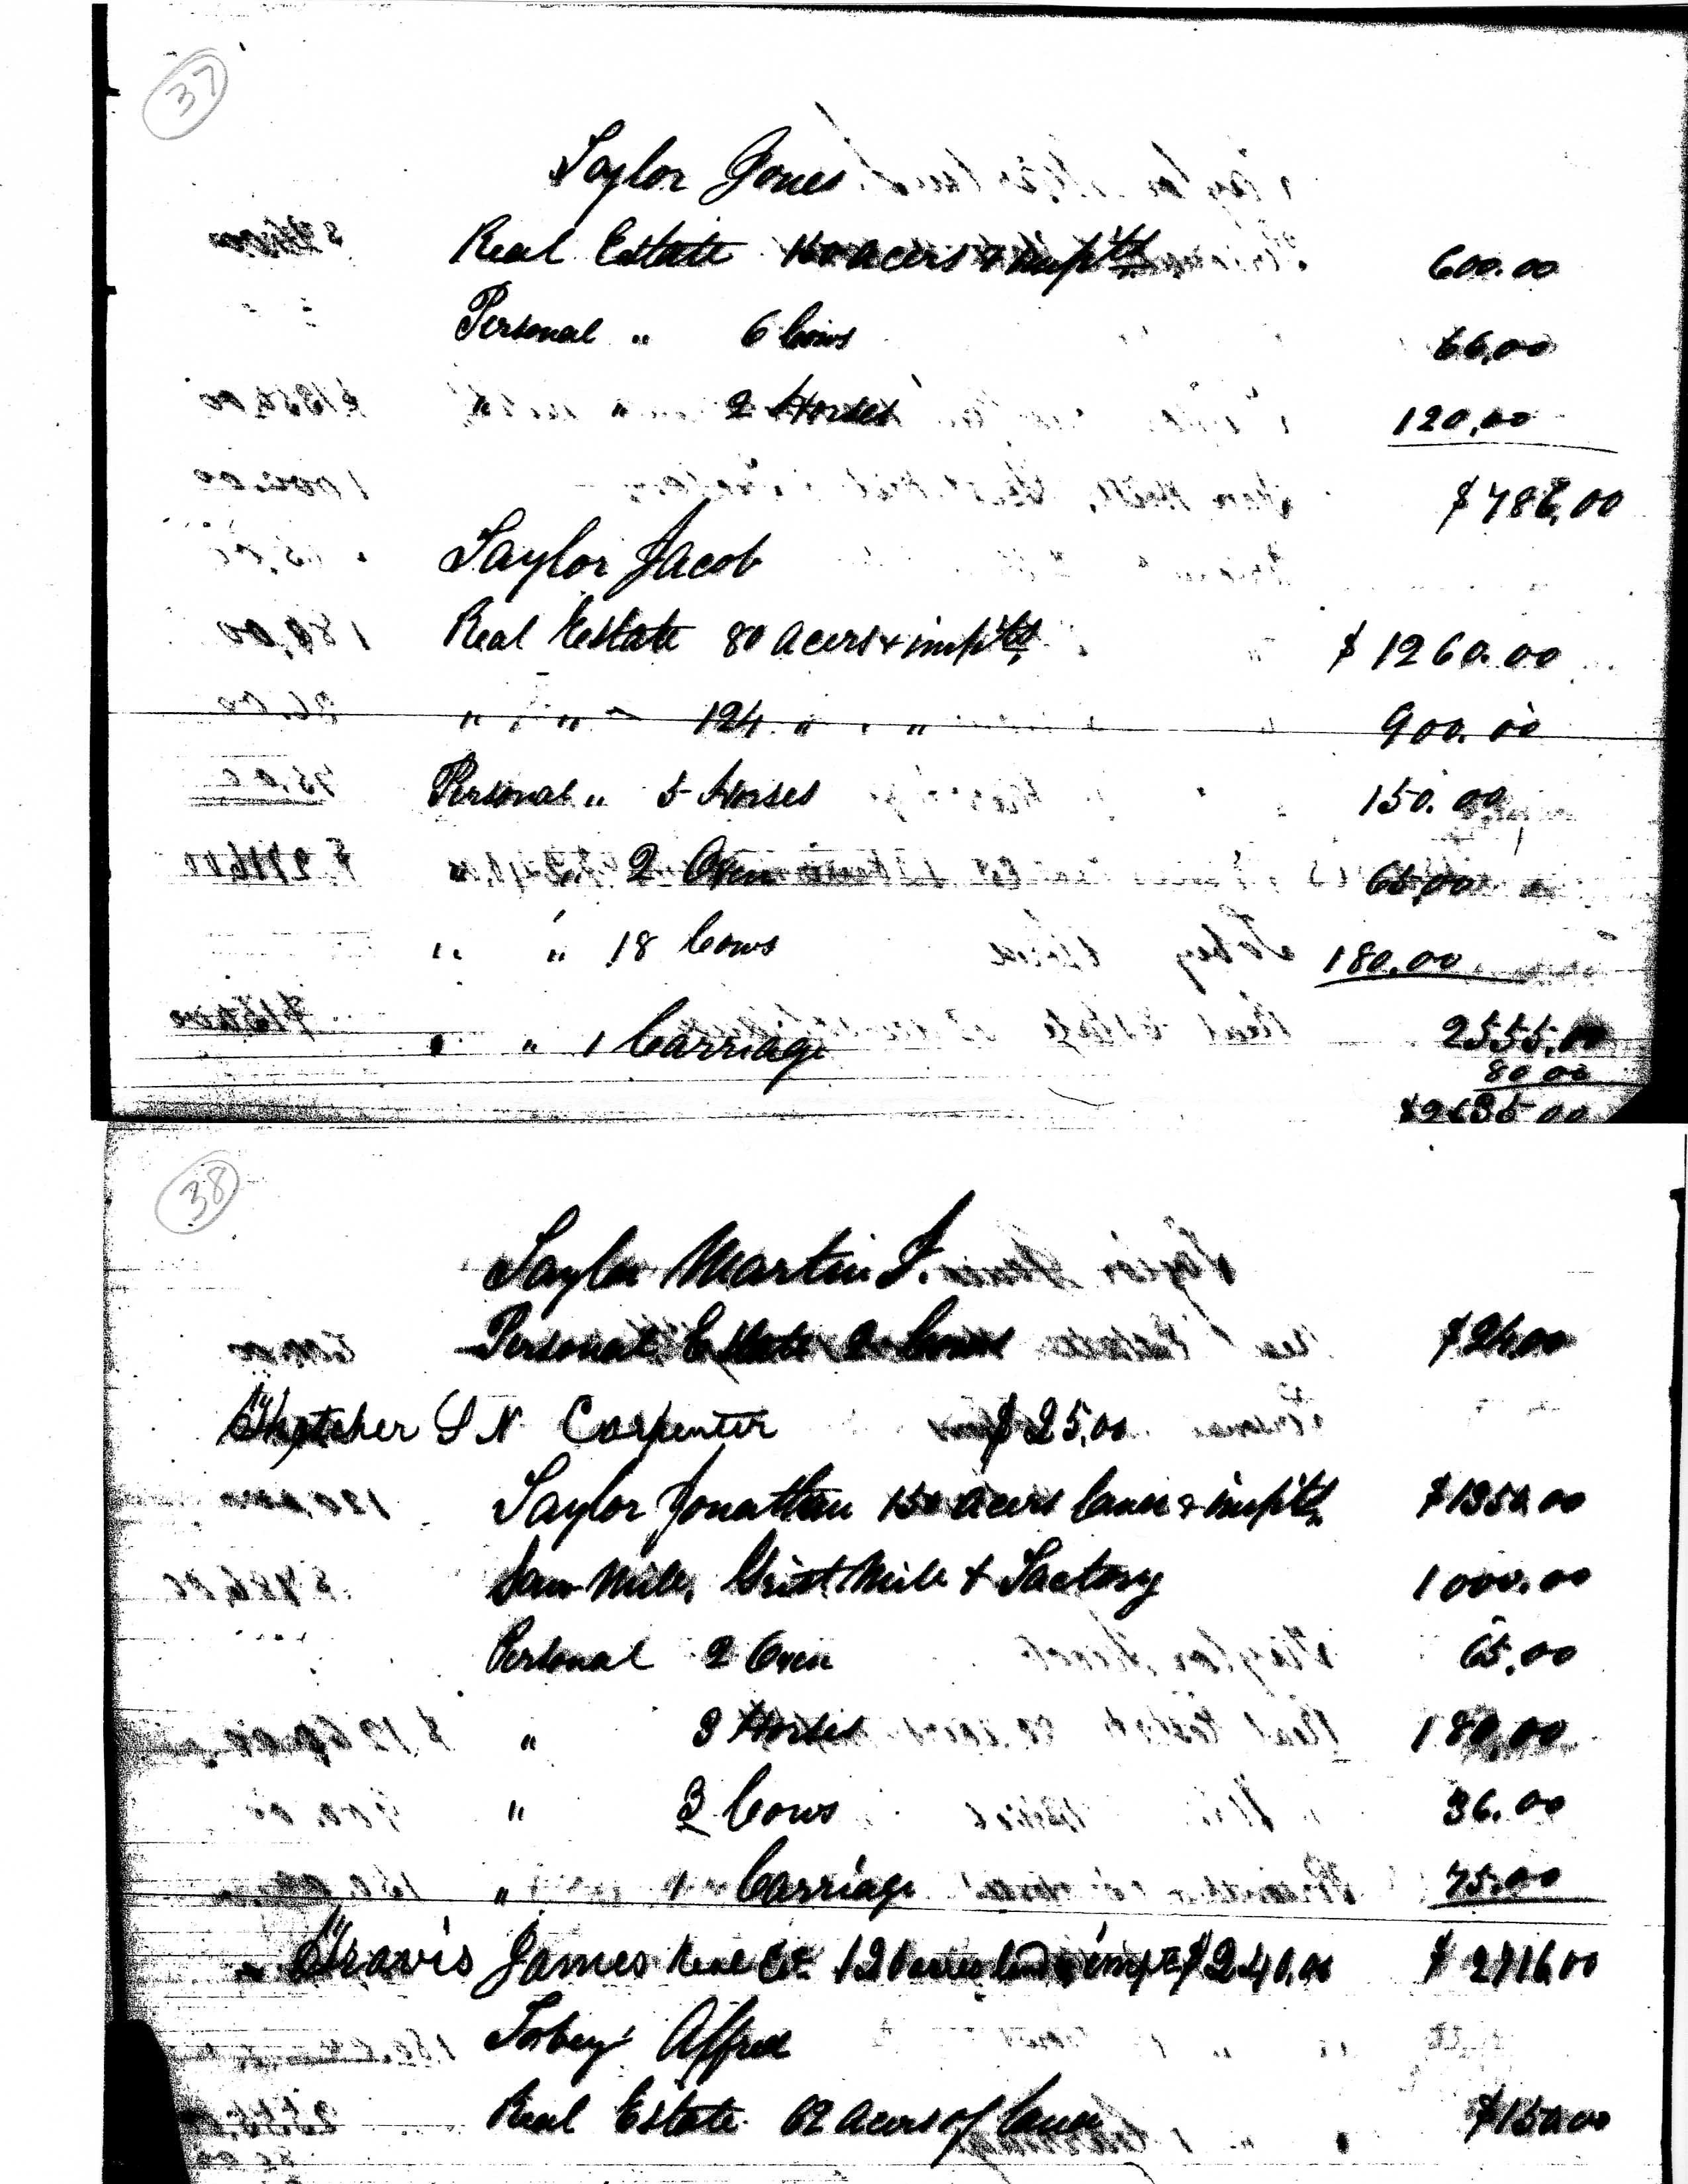 37
Taylor Jones
Real Estate 150 acers & impts 600.00
Personal " 6 Cows 66.00
" 2 Horses 120.00
$786.00
Taylor Jacob
Real Estate 80 acers & impts $1260.00
" " 124 " " 900.00
Personal " 5 Horses 150.00
" " 2 Oxen 65.00
" " 18 Cows 180.00
2555.00
" " 1 Carriage 80 00
$2635 00
38
Taylor Martin J.
Personal Estate 2 Cows $24.00
Thatcher S N Carpenter $25.00
Taylor Jonathan 150 acers land & impts $1350.00
Saw Mill, Grist Mill & Factory 1000.00
Personal 2 Oxen 65.00
" 3 Horses 180.00
" 3 Cows 36.00
" 1 Carriage 75.00
Travis James Real Est 120 acres land & impts $240.00 $2716.00
Tobey Alfred
Real Estate 62 acers of land $150.00